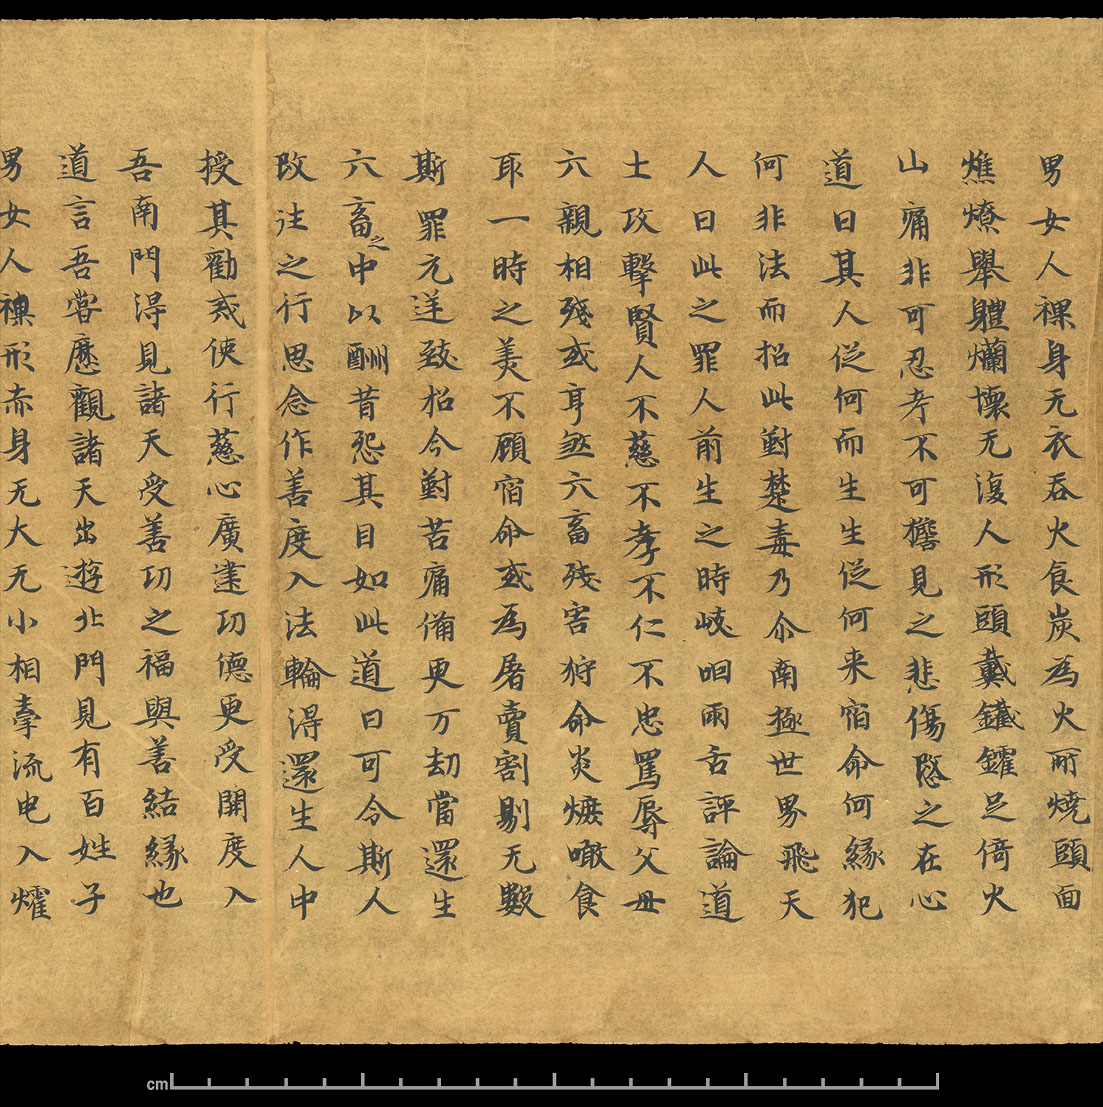 男女人裸身无衣吞火食炭為火所燒頭面
燋燎舉軆爛壞无復人形頭戴鐵鑵足倚火
山痛非可忍考不可瞻見之悲傷愍之在心
道曰其人従何而生生従何来宿命何縁犯
何非法而招此對楚毒乃尒南極世界飛天
人曰此之罪人前生之時岐𠱾兩舌評論道
士攻擊賢人不慈不孝不仁不忠罵辱父母
六親相殘或亨煞六畜殘害狩命炎爊噉食
取一時之美不顧宿命或為屠賣割剔无數
斯罪元逆致招今對苦痛備更万劫當還生
六畜之中以酬昔怨其目如此道曰可令斯人
改往之行思念作善度入法輪得還生人中
授其勸戒使行慈心廣建功德更受開度入
吾南門得見諸天受善功之福與善結縁也
道言吾甞歷觀諸天出遊北門見有百姓子
男女人裸形赤身无大无小相牽流曳入燿
cm